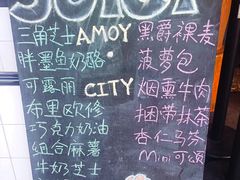 三角芝士
胖墨鱼奶酪
可露丽
布里欧修
巧克力奶油
组合麻薯
牛奶芝士
AMOY
CITY
黑爵裸麦
菠萝包
烟熏牛肉
捆带抹茶
杏仁马芬
Mini可颂